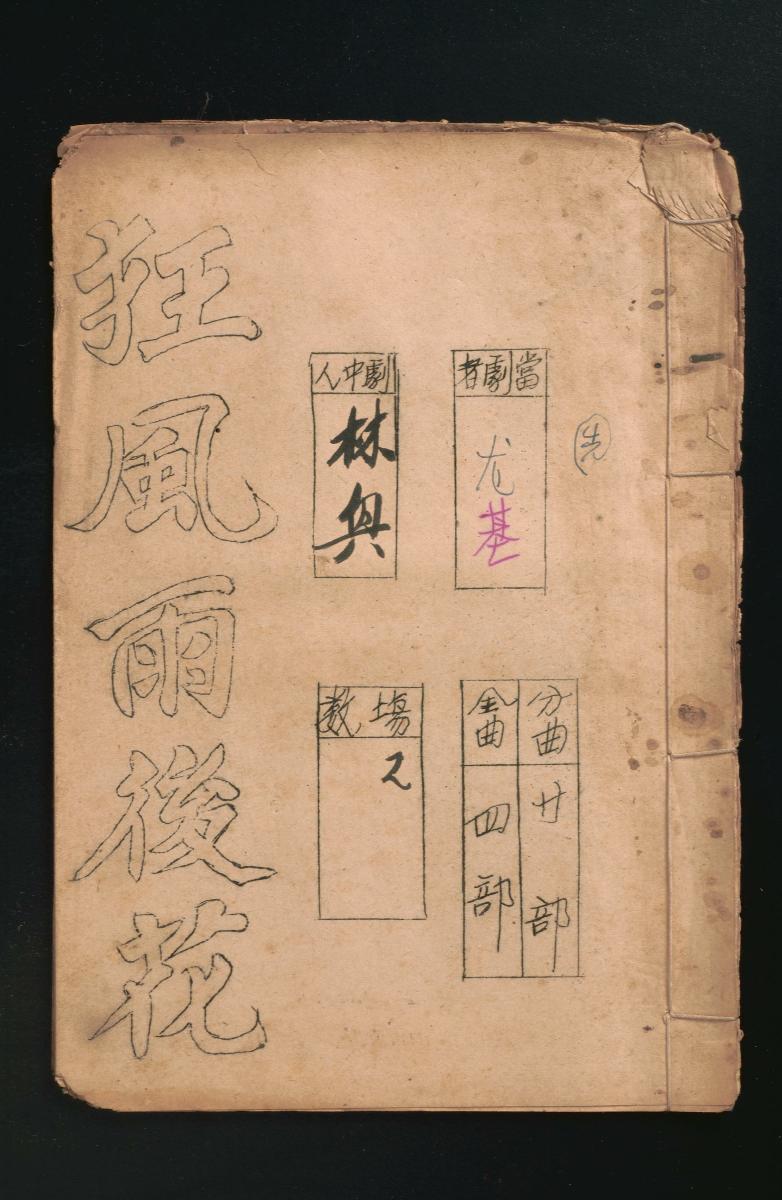 先
當劇者
基
劇中人
林
分曲
廿部
全曲
四部
場數
2
狂風雨後花